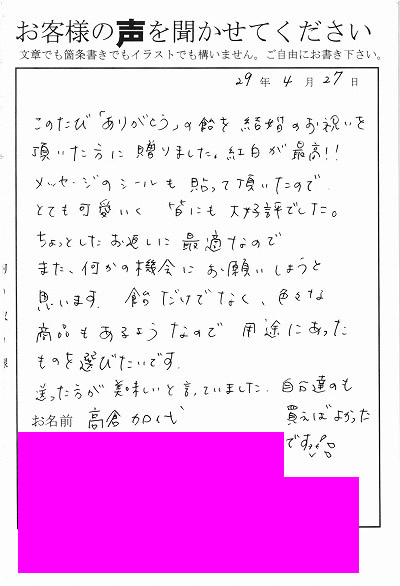 お客様の声を聞かせてください
文章でも箇条書きでもイラストでも構いません。ご自由にお書き下さい。
29年4月27日
このたび「ありがとう」の飴を結婚のお祝いを
頂いた方に贈りました。紅白が最高!!
メッセージのシールも貼って頂いたので
とても可愛いく皆にも大好評でした。
ちょっとしたお返しに最適なので
また、何かの機会にお願いしようと
思います。飴だけでなく、色々な
商品もあるようなので用途にあった
ものを選びたいです。
送った方が美味しいと言っていました。自分達のも
買えばよかった
です
お名前 高倉加代